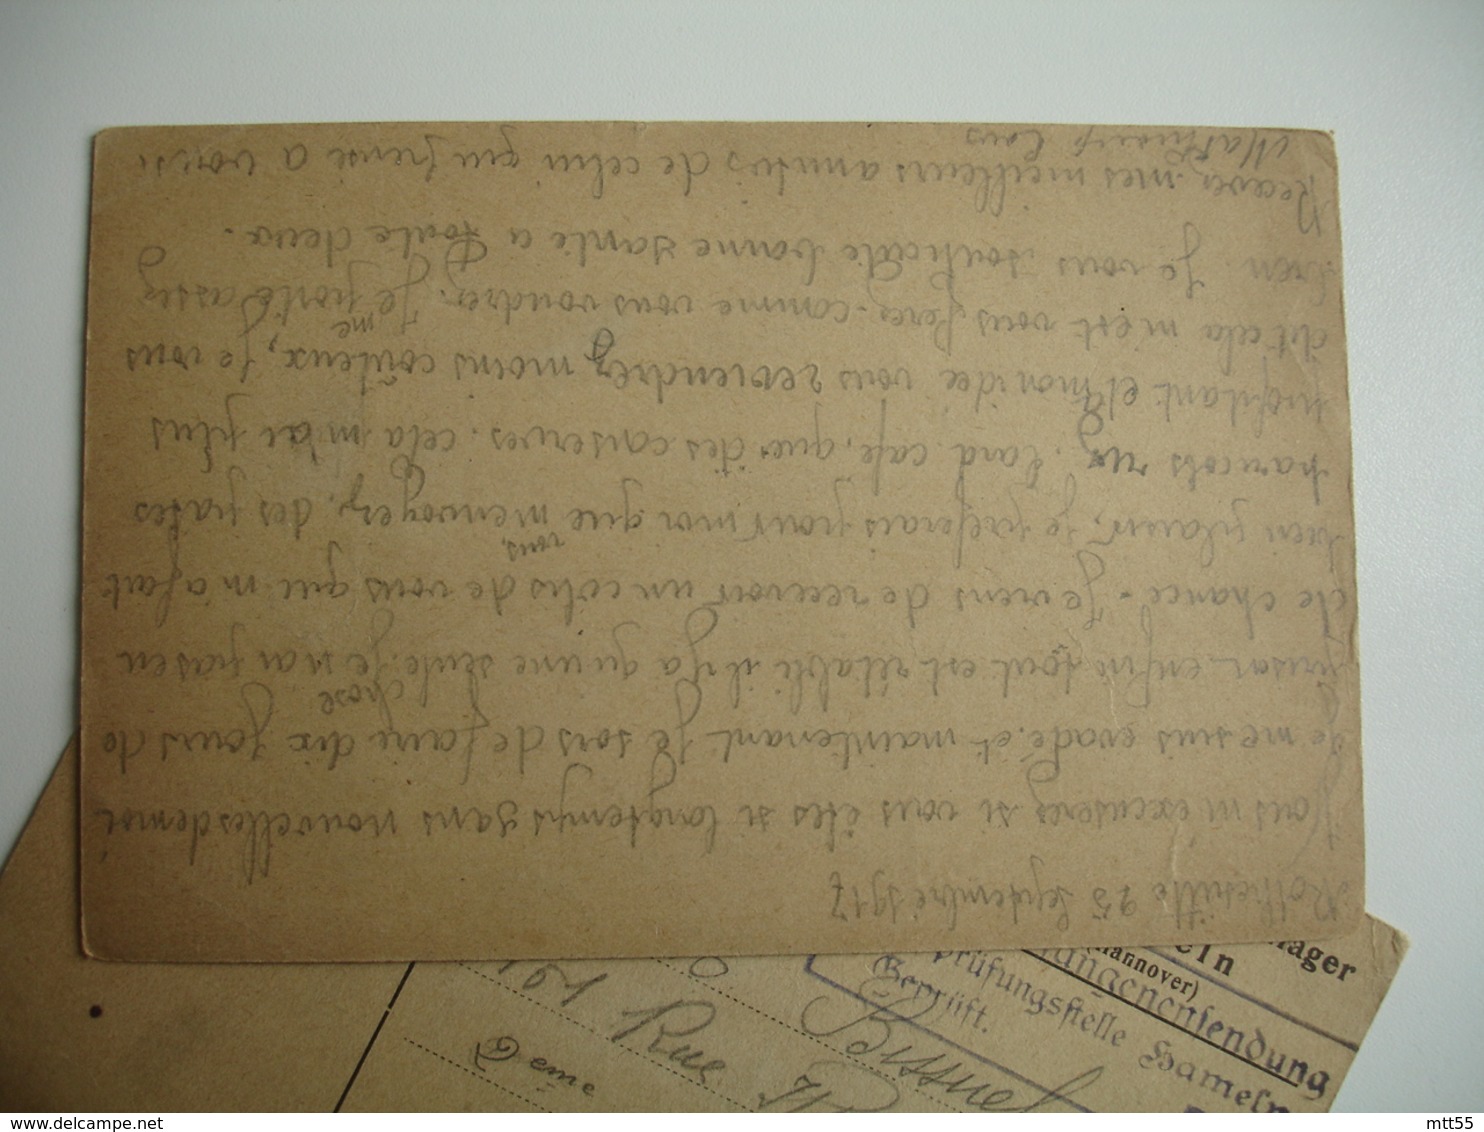 25 Septembre 1917
Vous m'excuserez si vous êtes si longtemps sans nouvelles de moi
Je me suis evadé, et maintenant Je sors de faire dix Jours de
prison enfin tout est rétabli il y a qu'une seule chose Je n'ai pas eu
de chance - Je viens de recevoir un colis de vous que m'a fait
bien plaisir, Je preferais pour moi que vous m'envoyez, des pates
haricots riz, lard, cafe, que des conserves. cela m'ai plus
profitant et mon idee vous reviendrez moins coûteux, Je vous
dit cela m'est vous ferez comme vous voudrez. Je me porte assez
bien Je vous souhaite bonne santé a toute deux.
Recever mes meilleurs amities de celui qui pense a vous.
Louis
lager
ln
(Hannover)
angenensendung
prüfungsstelle Hameln
Geprüft.
Bissuel
101 Rue
2eme
mtt55